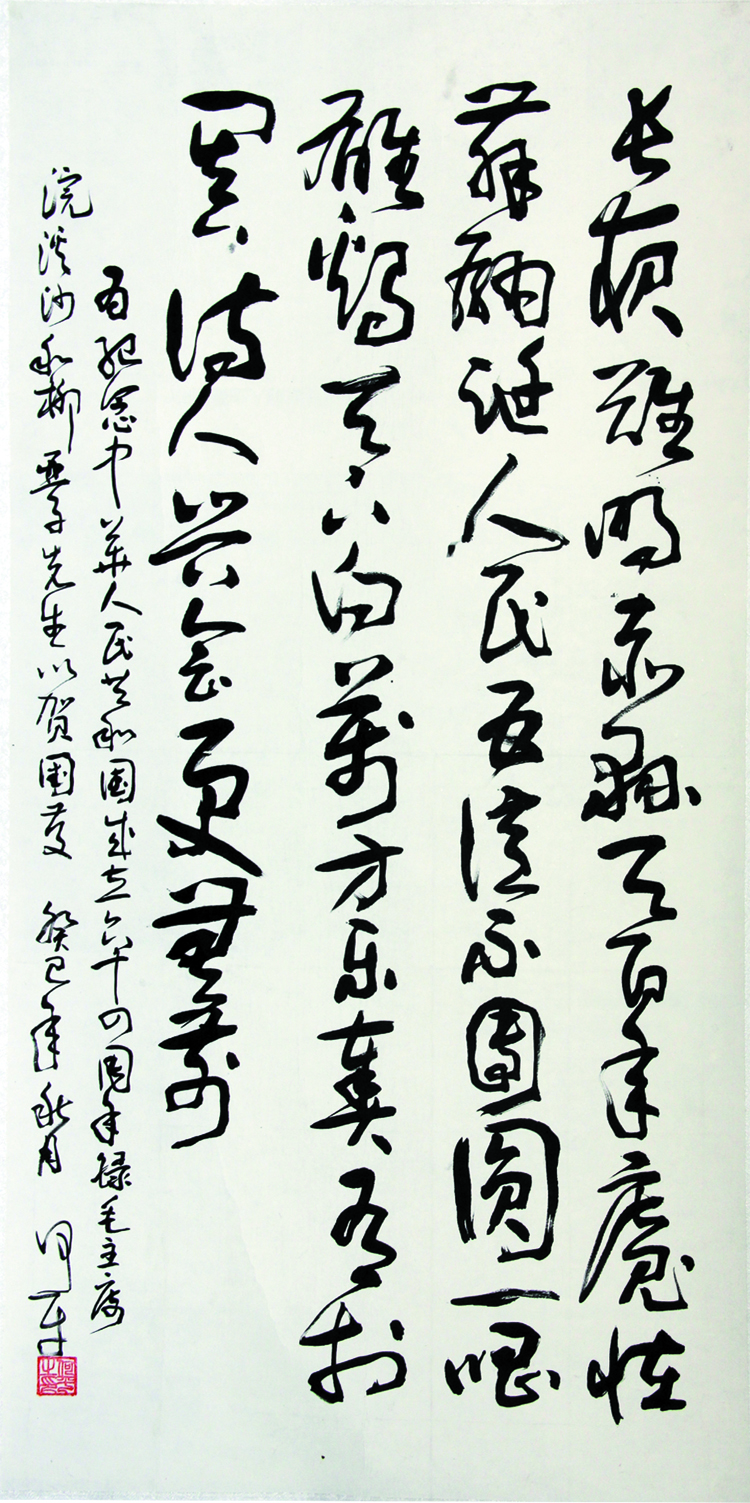 长夜难明赤縣天百年魔怪
舞翩跹人民五億不團圓一唱
雄鷄天下白萬方乐奏有于
阗诗人兴会更無前
为纪念中華人民共和國成立六十四周年録毛主席
浣溪沙和柳亞子先生以贺國慶 癸巳年秋月